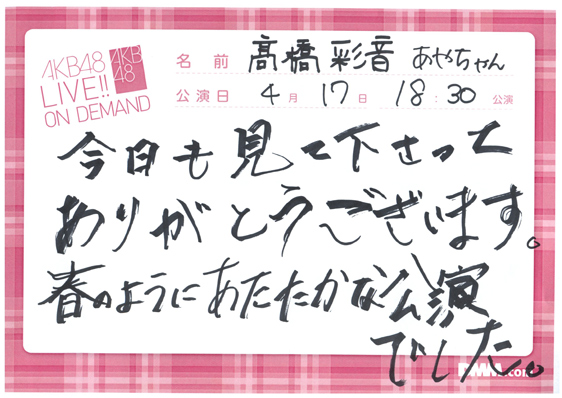 AKB48
LIVE!!
ON DEMAND
AKB
48
名前 髙橋彩音 あやちゃん
公演日 4月17日 18:30 公演
今日も見て下さって
ありがとうございます。
春のようにあたたかな公演
でした。
DMM.com